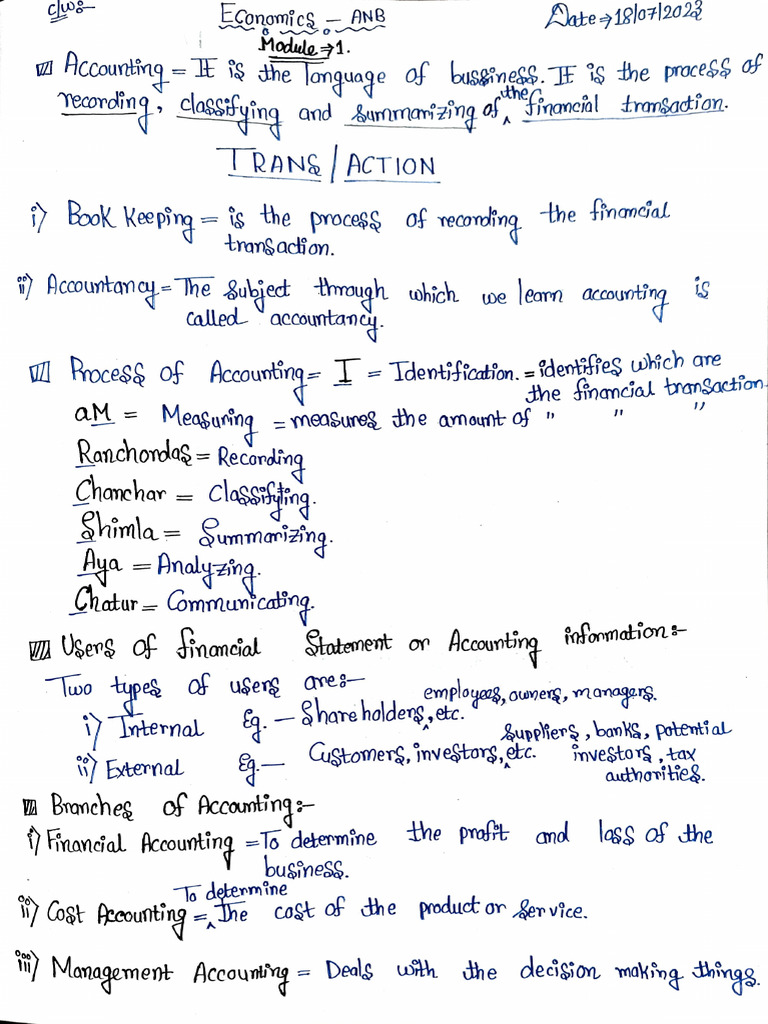 c/w:-
Economics - ANB
Date⇒18/07/2023
Module⇒1.
Accounting = It is the language of bussiness. It is the process of
recording, classifying and summarizing of the financial transaction.
TRANS/ACTION
i) Book Keeping = is the process of recording the financial
transaction.
ii) Accountancy = The subject through which we learn accounting is
called accountancy.
Process of Accounting = I = Identification. = identifies which are
the financial transaction.
aM = Measuring = measures the amount of " " "
Ranchordas = Recording
Chanchar = Classifying.
Shimla = Summarizing.
Aya = Analyzing.
Chatur = Communicating.
Users of financial Statement or Accounting information:-
Two types of users are:-
i) Internal Eg. - Shareholders, employees, owners, managers. etc.
ii) External Eg - Customers, investors, suppliers, banks, potential investors, tax authorities. etc.
Branches of Accounting:-
i) Financial Accounting = To determine the profit and loss of the
business.
ii) Cost Accounting = To determine The cost of the product or service.
iii) Management Accounting = Deals with the decision making things.